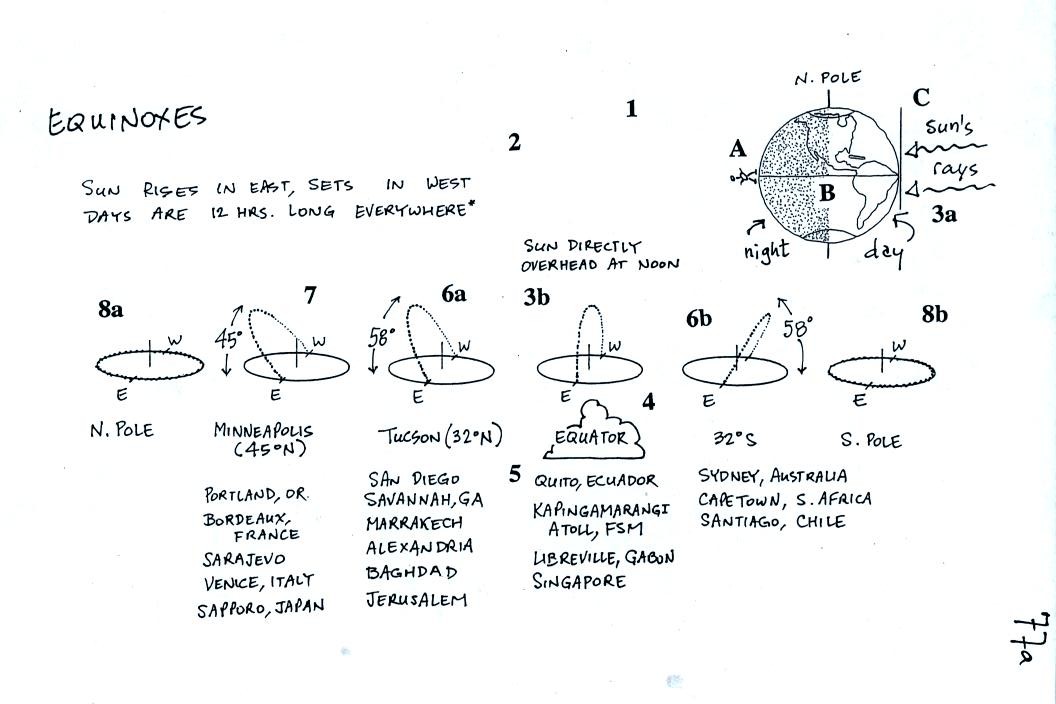 N. POLE
EQUINOXES
1
C
2
Sun's
A
rays
SUN RISES IN EAST, SETS IN WEST
DAYS ARE 12 HRS. LONG EVERYWHERE*
B
3a
night
day
SUN DIRECTLY
OVERHEAD AT NOON
8a
W
E
N. POLE
7
45°
W
E
MINNEAPOLIS
(45°N)
PORTLAND, OR.
BORDEAUX,
FRANCE
SARAJEVO
VENICE, ITALY
SAPPORO, JAPAN
6a
58°
W
E
TUCSON (32°N)
SAN DIEGO
SAVANNAH, GA
MARRAKECH
ALEXANDRIA
BAGHDAD
JERUSALEM
3b
W
E
4
EQUATOR
5
QUITO, ECUADOR
KAPINGAMARANGI
ATOLL, FSM
LIBREVILLE, GABON
SINGAPORE
6b
58°
E
32°S
SYDNEY, AUSTRALIA
CAPETOWN, S. AFRICA
SANTIAGO, CHILE
8b
W
E
S. POLE
77a